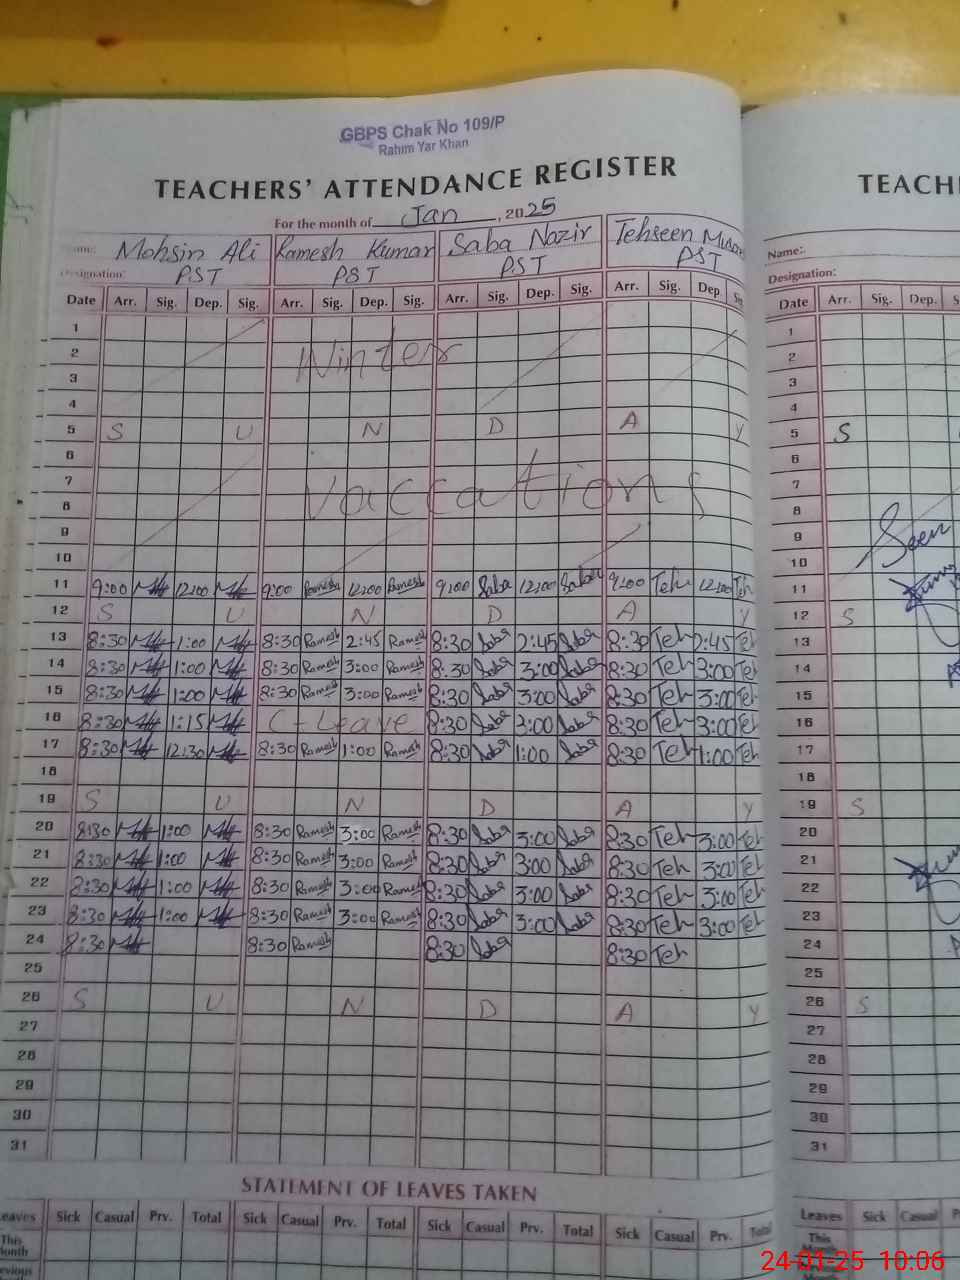 GBPS Chak No 109/P
Rahim Yar Khan
TEACHERS' ATTENDANCE REGISTER
For the month of Jan, 2025
Mohsin Ali Ramesh Kumar Saba Nazir Tehseen
Designation: PST PST PST PST
Date Arr. Sig. Dep. Sig. Arr. Sig. Dep. Sig. Arr. Sig. Dep. Sig. Arr. Sig. Dep Sig
1
2 Winter
3
4
5 S U N D A Y
6
7
8 Vaccations
9
10
11 9:00 12:00 9:00 Ramesh 12:00 Ramesh 9:00 Saba 12:00 Saba 9:00 Teh 12:00 Teh
12 S U N D A Y
13 8:30 1:00 8:30 Ramesh 2:45 Ramesh 8:30 Saba 2:45 Saba 8:30 Teh 2:45 Teh
14 8:30 1:00 8:30 Ramesh 3:00 Ramesh 8:30 Saba 3:00 Saba 8:30 Teh 3:00 Teh
15 8:30 1:00 8:30 Ramesh 3:00 Ramesh 8:30 Saba 3:00 Saba 8:30 Teh 3:00 Teh
16 8:30 1:15 C-Leave 8:30 Saba 3:00 Saba 8:30 Teh 3:00 Teh
17 8:30 12:30 8:30 Ramesh 1:00 Ramesh 8:30 Saba 1:00 Saba 8:30 Teh 1:00 Teh
18
19 S U N D A Y
20 8:30 1:00 8:30 Ramesh 3:00 Ramesh 8:30 Saba 3:00 Saba 8:30 Teh 3:00 Teh
21 8:30 1:00 8:30 Ramesh 3:00 Ramesh 8:30 Saba 3:00 Saba 8:30 Teh 3:00 Teh
22 8:30 1:00 8:30 Ramesh 3:00 Ramesh 8:30 Saba 3:00 Saba 8:30 Teh 3:00 Teh
23 8:30 1:00 8:30 Ramesh 3:00 Ramesh 8:30 Saba 3:00 Saba 8:30 Teh 3:00 Teh
24 8:30 8:30 Ramesh 8:30 Saba 8:30 Teh
25
26 S U N D A Y
27
28
29
30
31
STATEMENT OF LEAVES TAKEN
Leaves Sick Casual Prv. Total Sick Casual Prv. Total Sick Casual Prv. Total Sick Casual Prv. Total
This Month
TEACH
Name:
Designation:
Date Arr. Sig. Dep. S
1
2
3
4
5 S
6
7
8
9 Seen
10
11
12 S
13
14
15
16
17
18
19 S
20
21
22
23
24
25
26 S
27
28
29
30
31
Leaves Sick Casual P
This Month
24-01-25 10:06